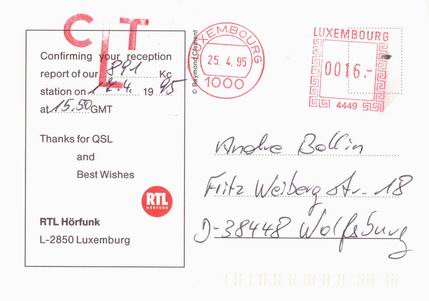 CLT
Confirming your reception
report of our 891 Kc
station on 14.4. 1995
at 15.50 GMT
Thanks for QSL
and
Best Wishes
RTL
HÖRFUNK
RTL Hörfunk
L-2850 Luxemburg
© Raymond Clement
LUXEMBOURG
25. 4. 95
1000
LUXEMBOURG
0016.-
4449
Andre Bollin
Fritz Weiberg Str. 18
D-38448 Wolfsburg